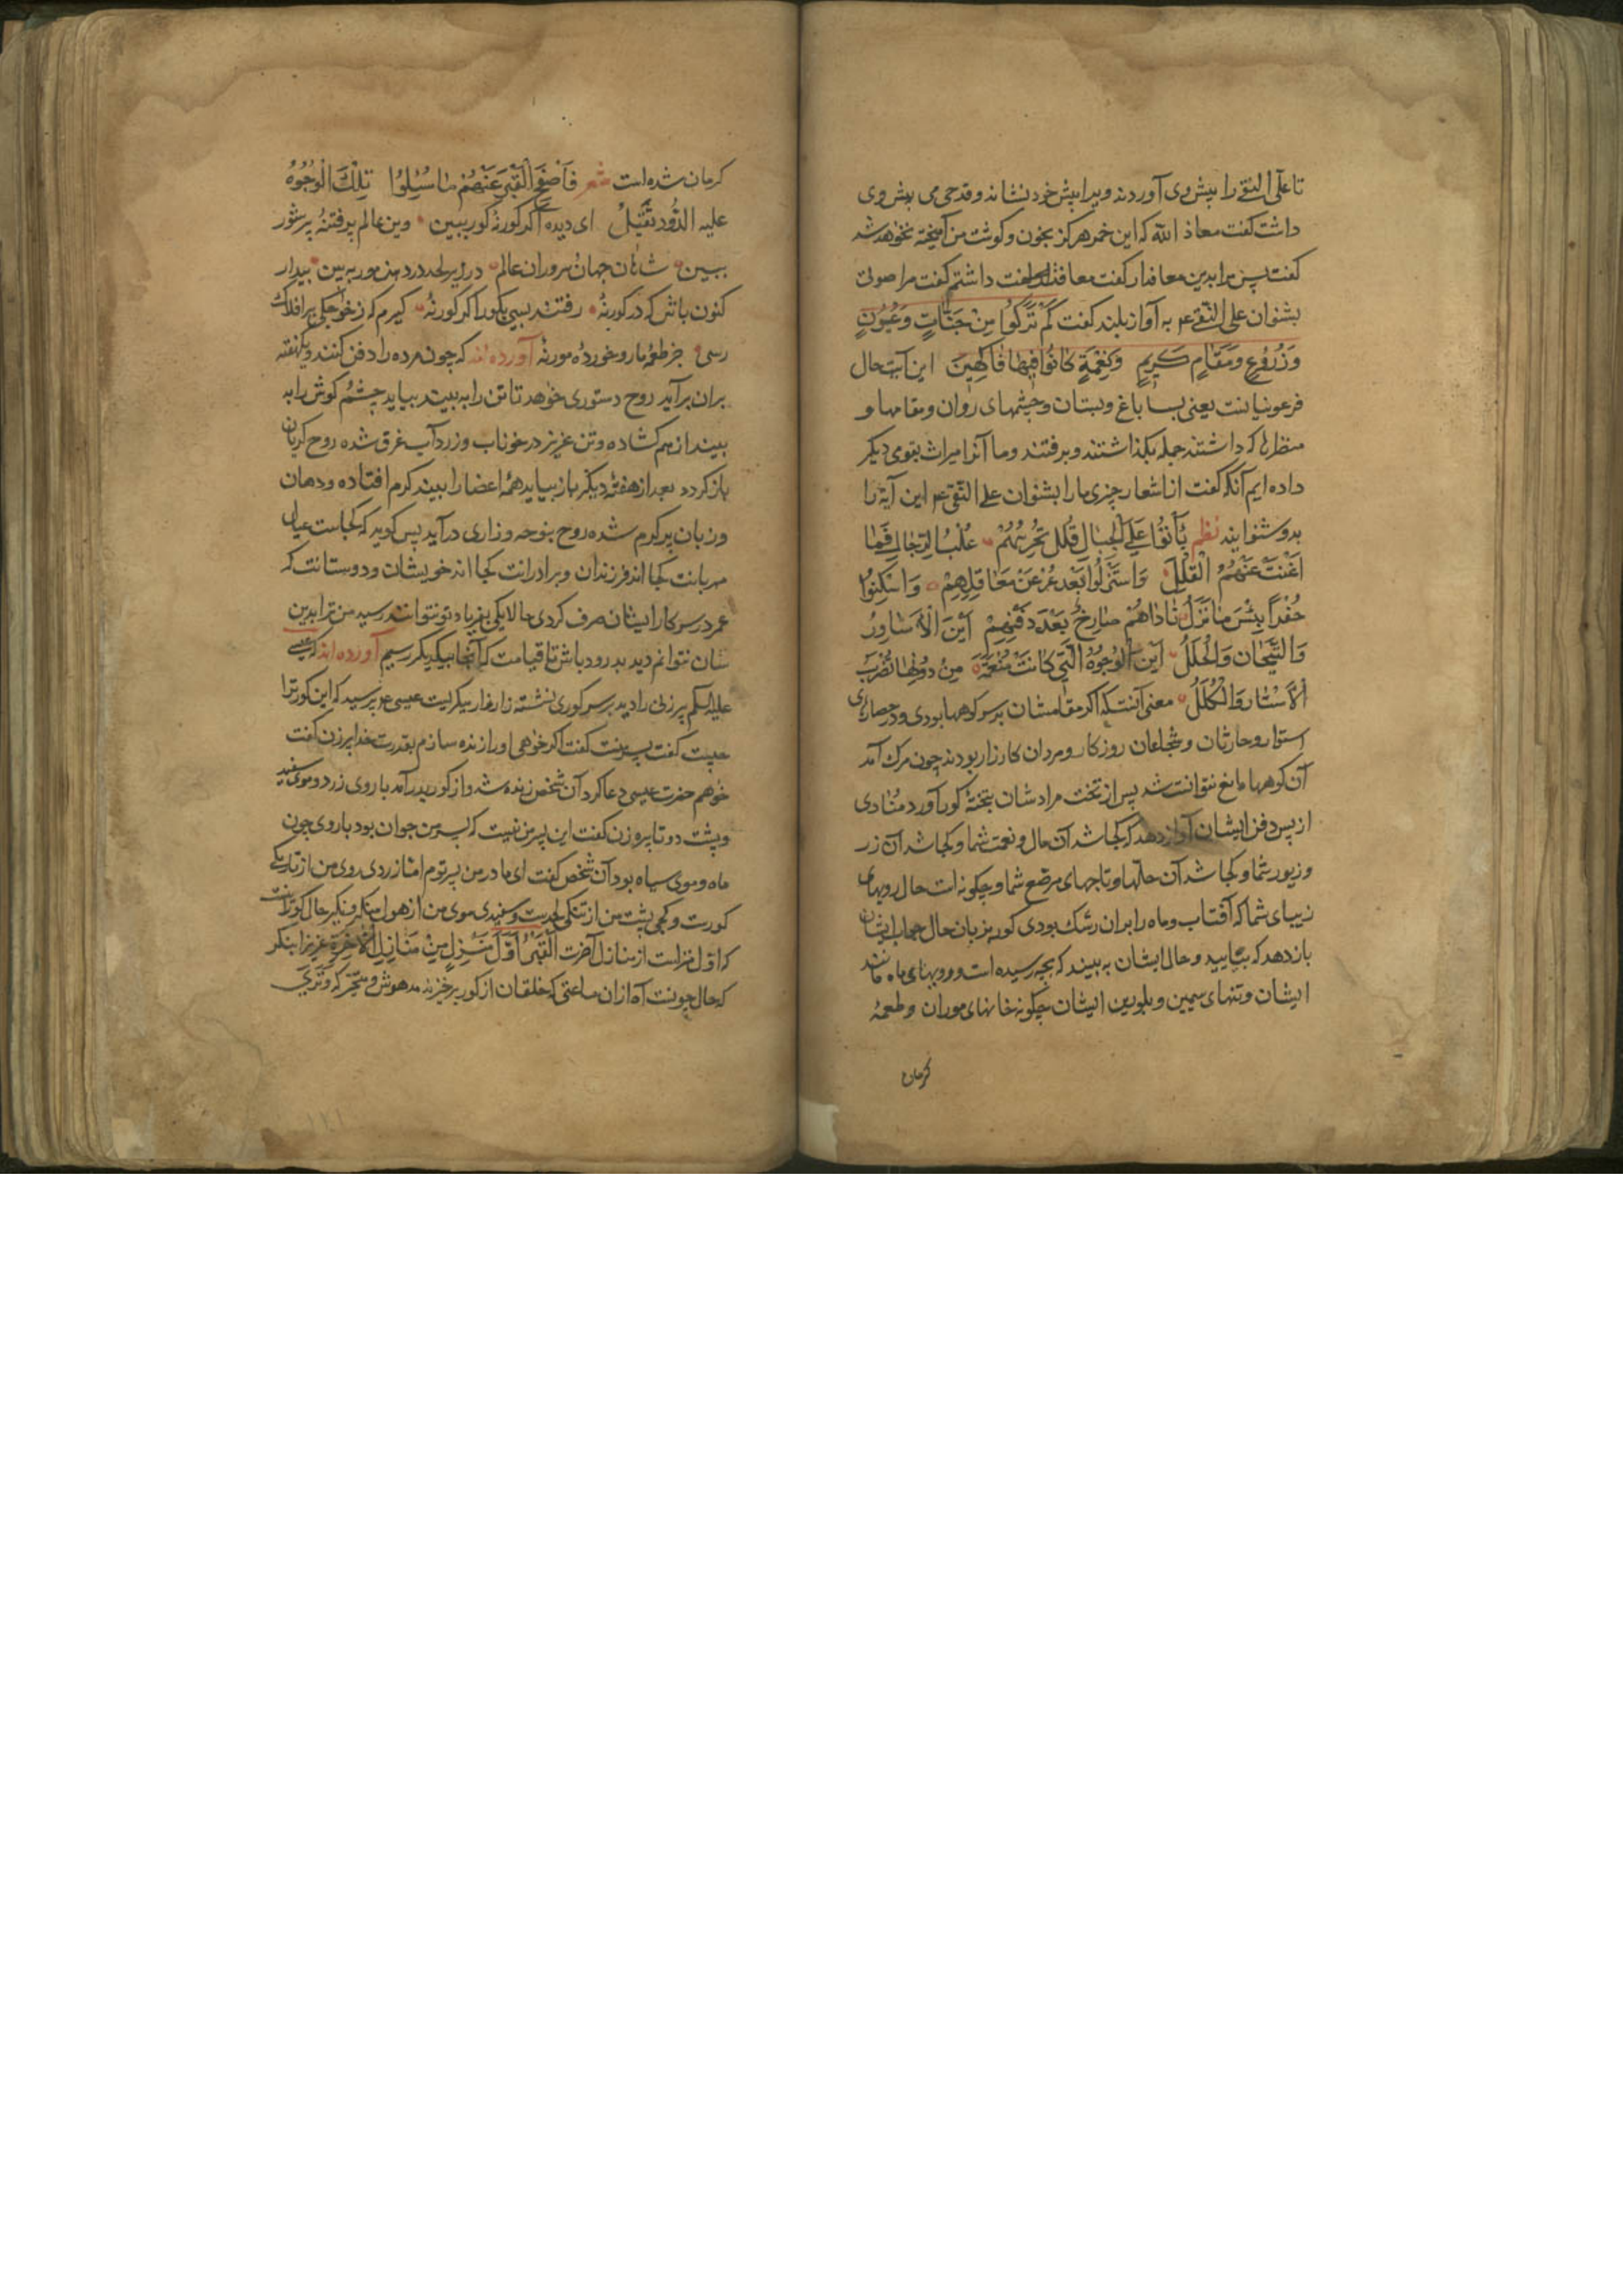 تا علی النقی را پیش وی آوردند ویرا پیش خود نشاند و قدحی می پیش وی
داشت کفت معاذ الله که این خمر هرکز بخون و کوشت من آمیخته نخواهد شد
کفت پس مرا بدین معاف دار کفت معافت داشتم کفت مرا صوتی
بشنوان علی النقی ع به آواز بلند کفت كَمْ تَرَكُوا مِنْ جَنَّاتٍ وَعُيُونٍ
وَزُرُوعٍ وَمَقَامٍ كَرِيمٍ وَنِعْمَةٍ كَانُوا فِيهَا فَاكِهِينَ این آیت حال
فرعونیانست یعنی بسا باغ و بستان و چشمهای روان و مقامها و
منظرها که داشتند جمله بکذاشتند و برفتند و ما آنرا میراث بقومی دیکر
داده ایم آنکه کفت از اشعار چیزی ما را بشنوان علی النقی ع این آیة را
بدو شنوانید نظم بَاتُوا عَلَى الْجِبَالِ قُلَلٍ تَحْرُسُهُمْ غُلْبُ الرِّجَالِ فَمَا
اَغْنَتْ عَنْهُمُ الْقُلَلُ وَاسْتُنْزِلُوا بَعْدَ عِزٍّ عَنْ مَعَاقِلِهِمْ وَاسْكِنُوا
حُفَرًا بِئْسَ مَا نَزَلُوا نَادَاهُمْ صَارِخٌ بَعْدَ دَفْنِهِمْ اَيْنَ الْاَسَاوِرُ
وَالتِّيجَانُ وَالْحُلَلُ اَيْنَ الْوُجُوهُ الَّتِي كَانَتْ مُنْعَمَةً مِنْ دُونِهَا تُضْرَبُ
الْاَسْتَارُ وَالْكُلَلُ معنی آنست که اکر مقامشان بر سر کوهها بودی و در حصارهای
استوار و حارثان و شجاعان روزکار و مردان کارزار بودند چون مرک آمد
آن کوهها مانع نتوانست شد پس از تخت مرادشان بتختهٔ کور آورد منادی
از پس دفن ایشان آواز دهد که کجا شد آن مال و نعمت شما و کجا شد آن زر
و زیور شما و کجا شد آن حلّها و تاجهای مرصّع شما و چکونه است حال رویهای
زیبای شما که آفتاب و ماه را بران رشک بودی کور بزبان حال جواب ایشان
باز دهد که بیایید و حال ایشان به بیند که بچه رسیده است و رویهای ماه مانند
ایشان و تنهای سیمین و بلورین ایشان چکونه خانهای موران و طعمهٔ
کرمان
کرمان شده است شعر فَاَفْصَحَ الْقَبْرُ عَنْهُمْ مَا سُئِلُوا تِلْكَ الْوُجُوهُ
عليه الدُّود تَقْتَتِلُ ای دیده اکر کور نهٔ کور ببین وین عالم پر فتنهٔ پر شور
ببین شاهان جهان سروران عالم در زیر لحد در دهن مور به بین بیدار
کنون باش که در کور نهٔ رفتند بسی بکور اکر کور نهٔ کیرم که ز خواجکی بر افلاک
رسی جز طعمهٔ مار و خوردهٔ مور نهٔ آورده اند که چون مرده را دفن کنند و یکهفته
بران برآید روح دستوری خواهد تا تن را به بیند بیاید چشم کوش را به
بیند از هم کشاده و تن عزیز در خوناب و زردآب غرق شده روح کریان
باز کردد بعد از هفتهٔ دیکر باز بیاید همهٔ اعضا را بیند کرم افتاده و دهان
و زبان پر کرم شده روح بنوحه و زاری درآید پس کوید که کجاست عیال
مهربانت کجا اند فرزندان و برادرانت کجا اند خویشان و دوستانت که
عمر در سر کار ایشان صرف کردی حالا یکی بفریاد تو نتوانند رسید من ترا بدین
سان نتوانم دید بدرود باش تا قیامت که آنجا بیکدیکر رسیم آورده اند که عیسی
علیه السلم پیر زنی را دید بر سر کوری نشسته زار زار میکریست عیسی ع پرسید که این کور ترا
چیست کفت پسرمنست کفت اکر خواهی او را زنده سازم بقدرت خدا پیر زن کفت
خواهم حضرت عیسی دعا کرد آن شخص زنده شد و از کور بدر آمد با روی زرد و موی سفید
و پشت دوتا پیره زن کفت این پسر من نیست که پسر من جوان بود با روی چون
ماه و موی سیاه بود آن شخص کفت ای مادر من پسر توم امّا زردی روی من از تاریکی
کورست و کجی پشت من از تنکی لحدست و سفیدی موی من از هول منکر و نکیر حال کور آنست
که اوّل منزلست از منازل آخرت اَلْقَبْرُ اَوَّلُ مَنْزِلٍ مِنْ مَنَازِلِ الْآخِرَةِ عزیزا بنکر
که حال چونست آه ازان ساعتی که خلقان از کور برخیزند مدهوش و متحیّر که وَتَرَى
۱۲۱